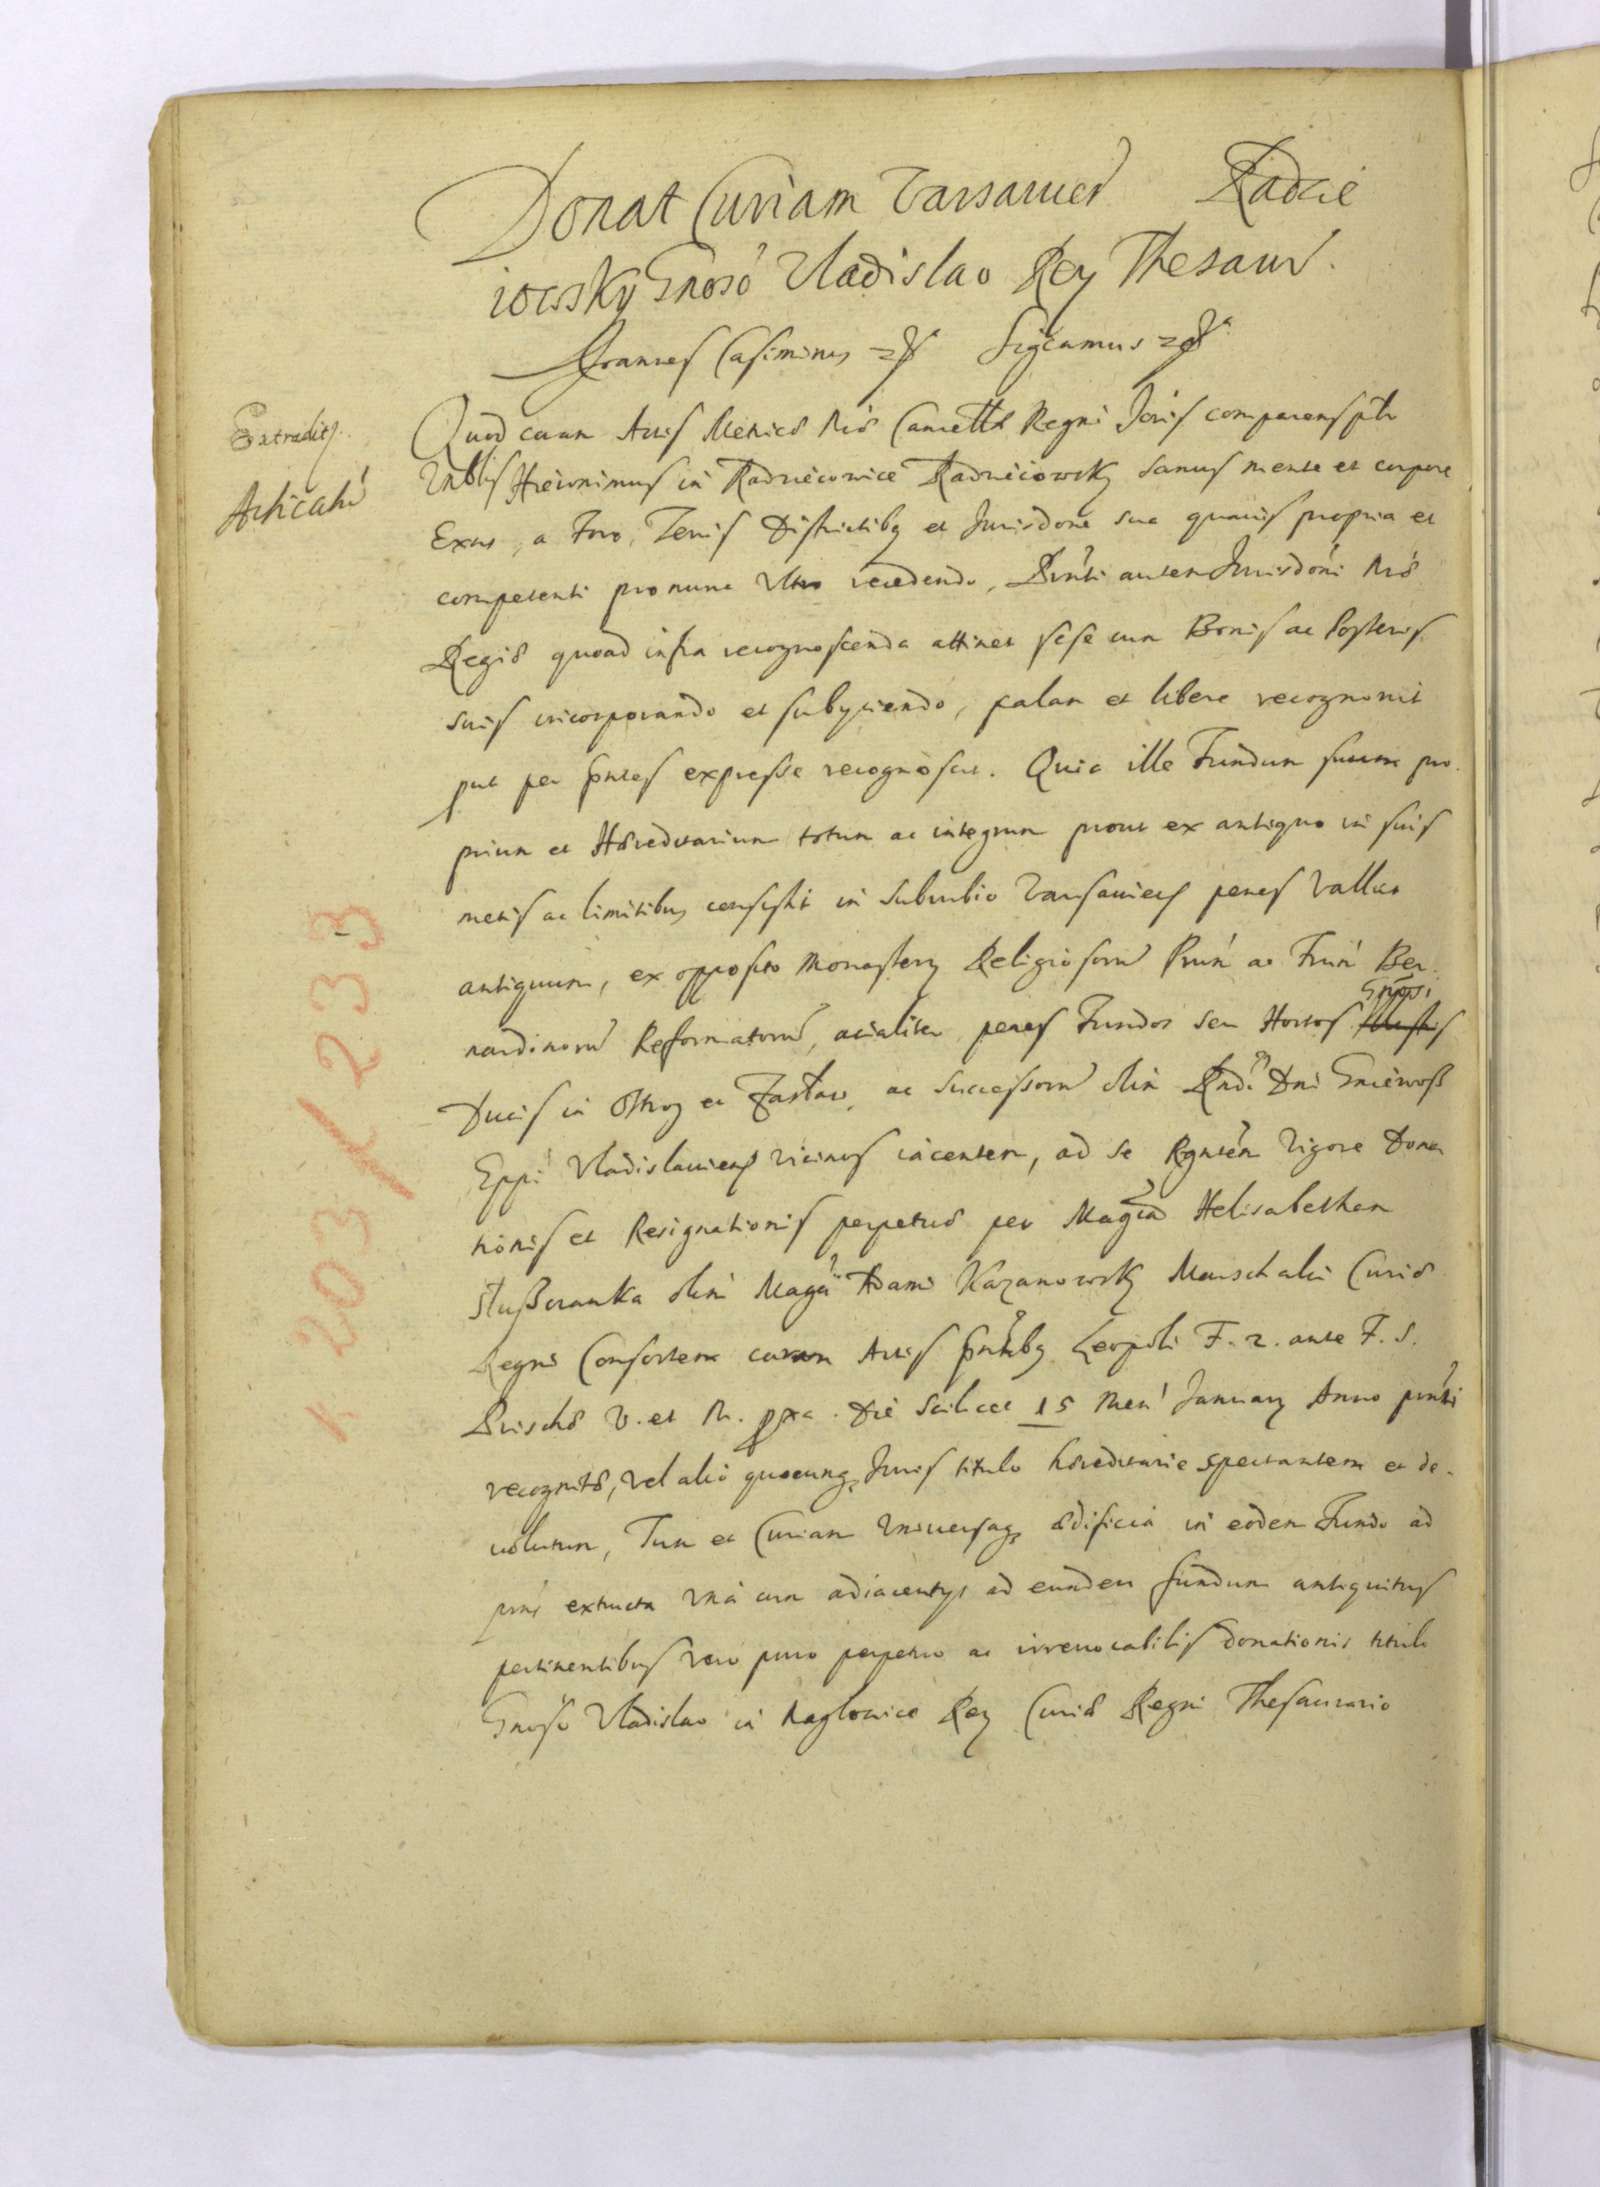 Donat Curiam Varsavien Radzie
iowsky Gnoso Vladislao Rey Thesaur.
Joannes Casimirus Significamus
Extradit.
Articalu
Quod coram Actis Metrices Ris Cancellæ Regni Joris comparens ptr
Nobilis Hieronimus in Radzieiowice Radzieiowsky sanus mente et corpore
Exns, a Foro, Terris Districtibq et Jurisdone sua quavis propria et
competenti pro nunc Vltro recedendo, Prnti autem Jurisdoni Ris
Regiæ quoad infra recognoscenda attinet sese cum Bonis ac Posteris
suis incorporando et subyciendo, palam et libere recognovit
put per pntes expresse recognoscit. Quia ille Fundum suum pro
prium et Hæreditarium totum ac integrum prout ex antiquo in suis
metis ac limitibus consistit in Suburbio Varsaviens penes Vallum
antiquum, ex opposito Monastery Religiosoru Prum ac Frum Ber
nardinoru Reformatoru, penes Fundos seu Hortos Gnosi
Ducis in Ostrog et Zaslaw, ac Successoru olim Rndi Dni Gniewoß
Eppi Vladislaviens vicinos iacentem, ad se Rgntem Vigore Dona
tionis et Resignationis perpetuæ per Magcam Helisabetham
Slußczanka olim Magci Adami Kazanowsky Marschalci Curiæ
Regni Consortem coram Actis pntibq Leopoli F. 2. ante F. S.
Priscæ V. et M. pxa. Die Scilicet 15 Men Januarj Anno pnti
recognitæ, Vel alio quocunq Juris titulo hæreditarie spectantem et de-
volutum, Tum et Curiam Vniversaq ædificia in eodem Fundo ad
pns extructa Vna cum adiacentys ad eundem fundum antiquitus
pertinentibus vero puro perpetuo ac irrevocabilis donationis titulo
Gnoso Vladislao in Naglowice Rey Curiæ Regni Thesaurario
k 203 f 233